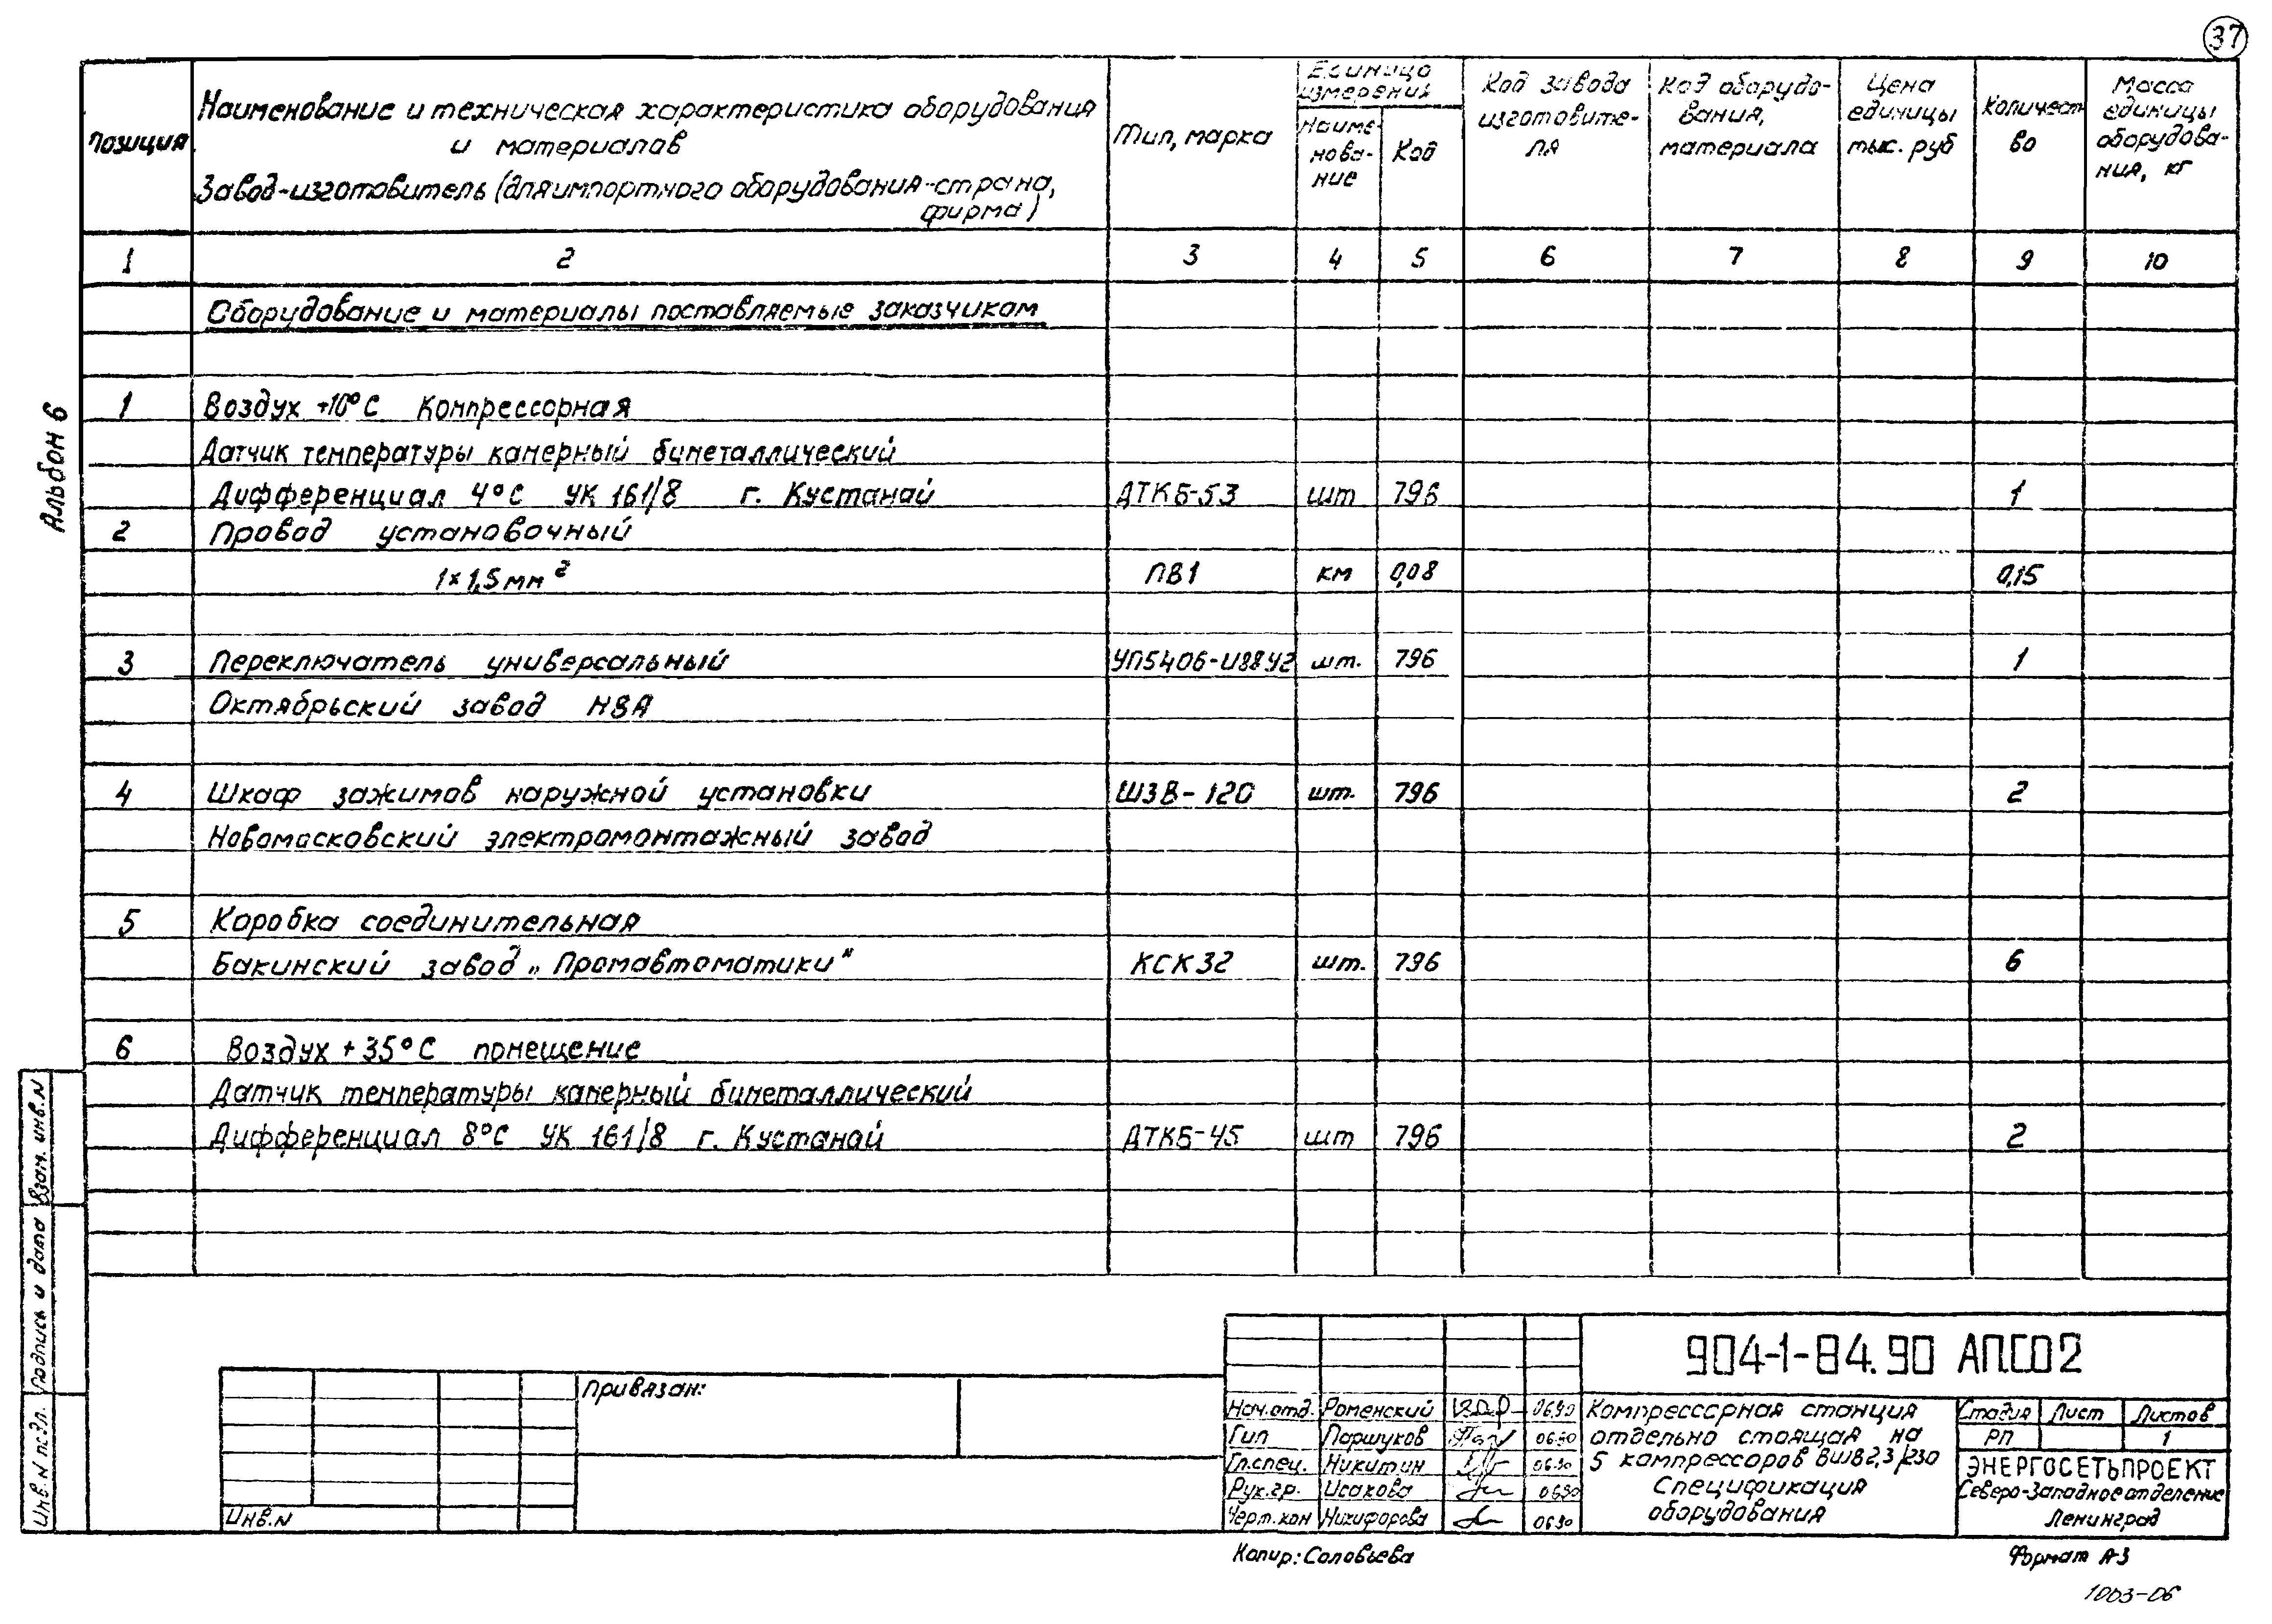 37
Позиция
Наименование и техническая характеристика оборудования
и материалов
Завод-изготовитель (для импортного оборудования-страна,
фирма)
Тип, марка
Единица
измерения
Наиме-
нова-
ние
Код
Код завода
изготовите-
ля
Код оборудо-
вания,
материала
Цена
единицы
тыс. руб
Количест-
во
Масса
единицы
оборудова-
ния, кг
1 2 3 4 5 6 7 8 9 10
Оборудование и материалы поставляемые заказчиком
1 Воздух +10°С Компрессорная
Датчик температуры камерный биметаллический
Дифференциал 4°С УК 161/8 г. Кустанай ДТКБ-53 шт 796 1
2 Провод установочный
1×1,5мм² ПВ1 км 0,08 0,15
3 Переключатель универсальный УП5406-И88У2 шт. 796 1
Октябрьский завод НВА
4 Шкаф зажимов наружной установки ШЗВ-120 шт. 796 2
Новомосковский электромонтажный завод
5 Коробка соединительная
Бакинский завод „Промавтоматики" КСК32 шт. 796 6
6 Воздух +35°С помещение
Датчик температуры камерный биметаллический
Дифференциал 8°С УК 161/8 г. Кустанай ДТКБ-45 шт 796 2
Альбом 6
Взам. инв.N
Подпись и дата
Инв.N подл.
Привязан:
Инв.N
904-1-84.90 АП.СО2
Нач.отд. Роменский 06.90
Гип Паршуков 06.90
Гл.спец. Никитин 06.90
Рук.гр. Исакова 06.90
Черт.кон Никифорова 06.90
Компрессорная станция
отдельно стоящая на
5 компрессоров ВШВ2,3/230
Спецификация
оборудования
Стадия Лист Листов
РП 1
ЭНЕРГОСЕТЬПРОЕКТ
Северо-Западное отделение
Ленинград
Копир: Соловьева
Формат А3
1003-06